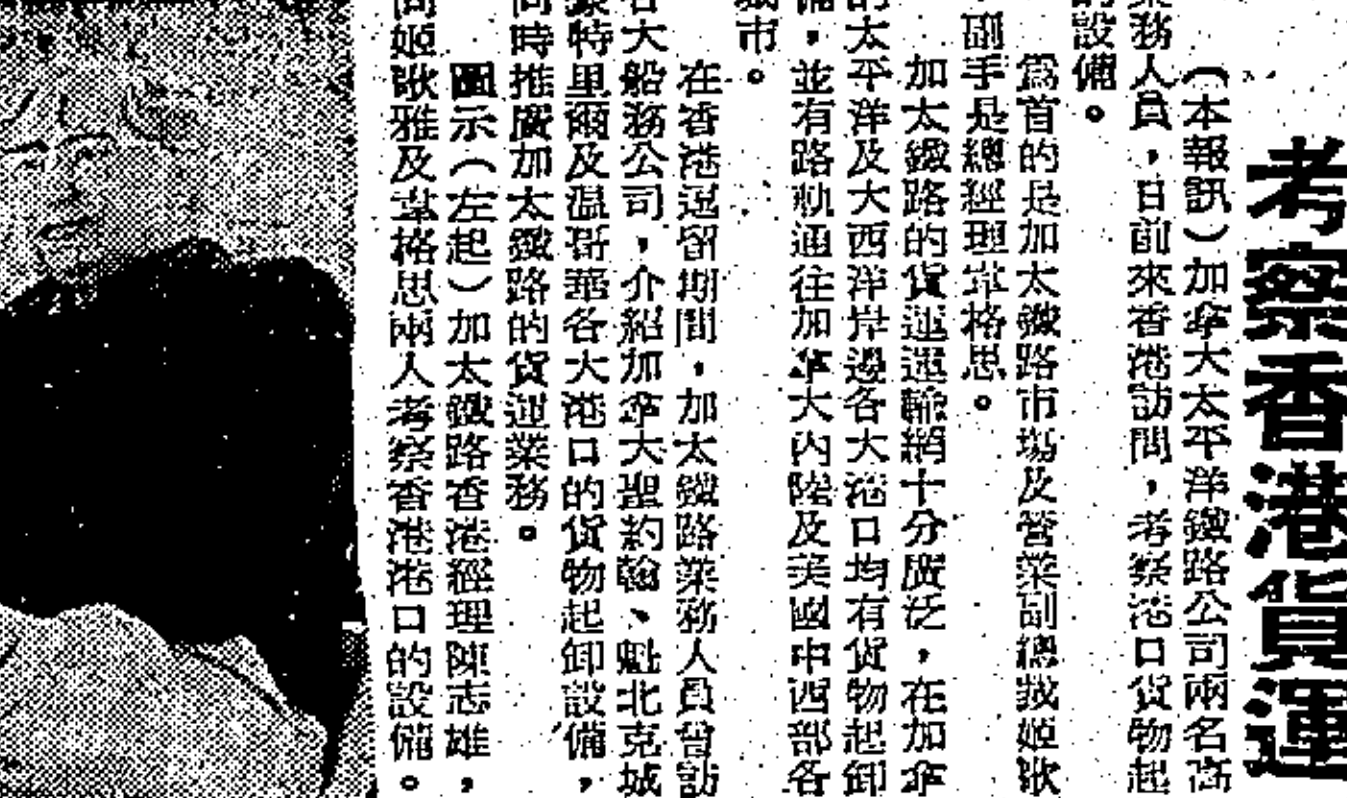 考察香港貨運
（本報訊）加拿大太平洋鐵路公司兩名高
業務人員，日前來香港訪問，考察港口貨物起
的設備。
爲首的是加太鐵路市場及營業副總裁姬歌
副手是總經理韋格思。
加太鐵路的貨運運輸網十分廣泛，在加拿
的太平洋及大西洋岸邊各大港口均有貨物起卸
備，並有路軌通往加拿大內陸及美國中西部各
城市。
在香港逗留期間，加太鐵路業務人員曾訪
各大船務公司，介紹加拿大聖約翰、魁北克城
蒙特里爾及温哥華各大港口的貨物起卸設備，
同時推廣加太鐵路的貨運業務。
圖示（左起）加太鐵路香港經理陳志雄，
同姬歌雅及韋格思兩人考察香港港口的設備。